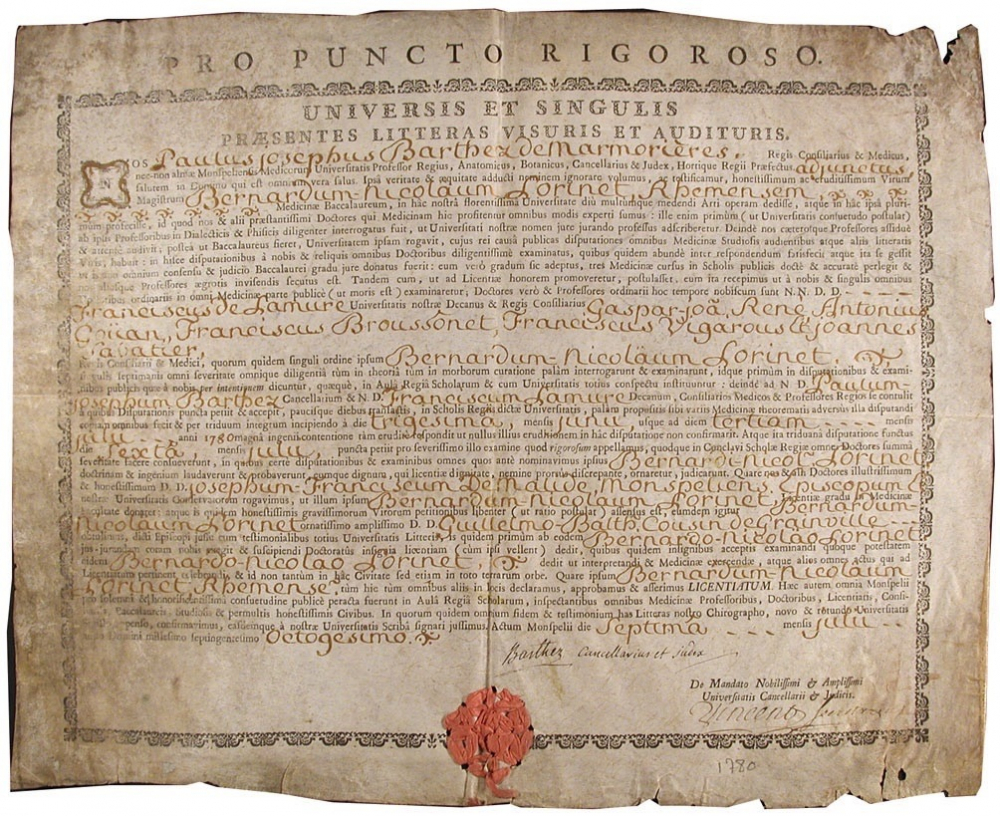 PRO PUNCTO RIGOROSO.
UNIVERSIS ET SINGULIS
PRÆSENTES LITTERAS VISURIS ET AUDITURIS.
NOS Paulus Josephus Barthez de Marmorieres. Regis Consiliarius & Medicus,
nec-non almæ Monspeliensis Medicorum Universitatis Professor Regius, Anatomicus, Botanicus, Cancellarius & Judex, Hortique Regii Præfectus adjunctus
salutem in Domino qui est omnium vera salus. Ipsâ veritate & æquitate adducti neminem ignorare volumus, ac testificamur, honestissimum ac eruditissimum Virum
Magistrum Bernardum Nicolaum Lorinet, Rhemensem
Medicinæ Baccalaureum, in hâc nostrâ florentissimâ Universitate diù multumque medendi Arti operam dedisse, atque in hâc ipsâ pluri-
mùm profecisse, id quod nos & alii præstantissimi Doctores qui Medicinam hic profitentur omnibus modis experti sumus: ille enim primùm (ut Universitatis consuetudo postulat)
ab ipsis Professoribus in Dialecticis & Phisicis diligenter interrogatus fuit, ut Universitati nostræ nomen jure jurando professus adscriberetur. Deindè nos cæterosque Professores assiduè
& attentè audivit; posteà ut Baccalaureus fieret, Universitatem ipsam rogavit, cujus rei causâ publicas disputationes omnibus Medicinæ Studiosis audientibus atque aliis litteratis
Viris, habuit: in hisce disputationibus à nobis & reliquis omnibus Doctoribus diligentissimè examinatus, quibus quidem abundè inter respondendum satisfecit atque ita se gessit
ut is cum omnium consensu & judicio Baccalaurei gradu jure donatus fuerit: cum verò gradum sic adeptus, tres Medicinæ cursus in Scholis publicis doctè & accuratè perlegit &
Professores ægrotis invisendis secutus est. Tandem cum, ut ad Licentiæ honorem promoveretur, postulasset, eum ita recepimus ut à nobis & singulis omnibus
ordinariis in omni Medicinæ parte publicè (ut moris est) examinaretur, Doctores verò & Professores ordinarii hoc tempore nobiscum sunt N.N. D. D.
Franciscus de Lamure Universitatis nostræ Decanus & Regis Consiliarius Gaspar-joã, René Antonius
Goüan, Franciscus Broussonet, Franciscus Vigarous & joannes
Sabatier,
Regis Consiliarii & Medici, quorum quidem singuli ordine ipsum Bernardum-Nicoläum Lorinet,
septimanis omni severitate omnique diligentiâ tùm in theoriâ tùm in morborum curatione palàm interrogarunt & examinarunt, idque primùm in disputationibus & exami-
nibus publicis quæ à nobis per intentionem dicuntur, quæque, in Aulâ Regiâ Scholarum & cum Universitatis totius conspectu instituuntur: deindè ad N. D. Paulum-
josephum Barthez Cancellarium & N.D. Franciscum Lamure Decanum, Consiliarios Medicos & Professores Regios se contulit
à quibus Disputationis puncta petiit & accepit, paucisque diebus translactis, in Scholis Regiis dictæ Universitatis, palàm propositis sibi variis Medicinæ theorematis adversùs illa disputandi
copiam omnibus fecit & per triduum integrum incipiendo à die trigesima, mensis junii, usque ad diem tertiam mensis
julii anni 1780 magnâ ingenii contentione tàm eruditè respondit ut nullus illius eruditionem in hâc disputatione non confirmarit. Atque ita triduanâ disputatione functus
die sexta, mensis julii, puncta petiit pro severissimo illo examine quod rigorosum appellamus, quodque in Conclavi Scholæ Regiæ omnes Doctores summâ
severitate facere consueverunt, in quibus certe disputationibus & examinibus omnes quos antè nominavimus ipsum Bernardi-Nicol. Lorinet
doctrinam & ingenium laudaverunt & probaverunt, eumque dignum, qui licentiæ dignitate, nemine prorsùs discrepante, ornaretur, judicarunt. Quare cum Doctores illustrissimum
& honestissimum D.D. josephum-Franciscum De Malide Monspeliens. Episcopum &
nostræ Universitatis Conservatorem rogavimus, ut illum ipsum Bernardum-Nicolaum Lorinet, licentiæ gradu in Medicinæ
facultate donaret: atque is quidem honestissimis gravissimorum Virorum petitionibus libenter (ut ratio postulat) assensus est; eumdem igitur Bernardum-
Nicolaum Lorinet ornatissimo amplissimo D. D. Guillelmo-Balth. Cousin de Grainville
dicti Episcopi jussu cum testimonialibus totius Universitatis Litteris, is quidem primùm ab eodem Bernardo-Nicolao Lorinet
jus-jurandum coram nobis exegit & suscipiendi Doctoratûs insignia licentiam (cùm ipsi vellent) dedit, quibus quidem insignibus acceptis examinandi quoque potestatem
eidem Bernardo-Nicolao Lorinet, dedit ut interpretandi & Medicinæ exercendæ, atque alios omnes actus qui ad
Licentiatum pertinent & id non tantùm in hâc Civitate sed etiam in toto terrarum orbe. Quare ipsum Bernardum-Nicolaum
Lorinet Rhemense, tùm hic tùm omnibus aliis in locis declaramus, approbamus & asserimus LICENTIATUM. Hæc autem omnia Monspelii
pro solemni & honestissimâ consuetudine publicè peracta fuerunt in Aulâ Regiâ Scholarum, inspectantibus omnibus Medicinæ Professoribus, Doctoribus, Licentiatis, Consi-
Baccalaureis, Studiosis & permultis honestissimis Civibus. In quorum quidem omnium fidem & testimonium has Litteras nostro Chirographo, novo & rotundo Universitatis
confirmavimus, easdemque à nostræ Universitatis Scribâ signari jussimus. Actum Monspelii die septima mensis julii
anno Domini millesimo septingentesimo octogesimo.
Barthez Cancellarius et judex
De Mandato Nobilissimi & Amplissimi
Universitatis Cancellarii & Judicis.
1780